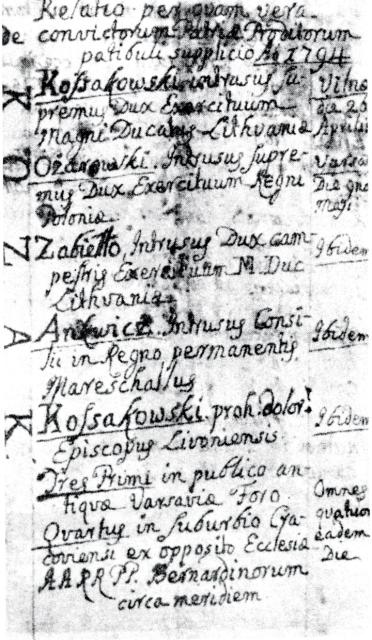 Relatio per quam vera
de convictorum Patriæ Proditorum
patibuli supplicio Ao 1794
Kossakowski intrusus Su-
premus Dux Exercituum
Magni Ducatus Lithvaniæ
Vilnæ
die 25
Aprilis
Ożarowski. Intrusus supre-
mus Dux Exercituum Regni
Poloniæ
Varsa
Die 9na
Maji
Zabiełło, Intrusus Dux cam-
pestris Exercituum M. Duc
Lithvaniæ
Ibidem
Ankwicz. Intrusus Consi-
lii in Regno permanentis
Mareschallus
Ibidem
Kossakowski proh. dolor!
Episcopus Livoniensis
Ibidem
Tres Primi in publico an
tiquæ Varsaviæ Foro
Quartus in suburbio Cra-
coviensi ex opposito Ecclesiæ
AARRPP. Bernardinorum
circa meridiem
Omnes
quatuor
eadem
Die
K
O
Z
A
K